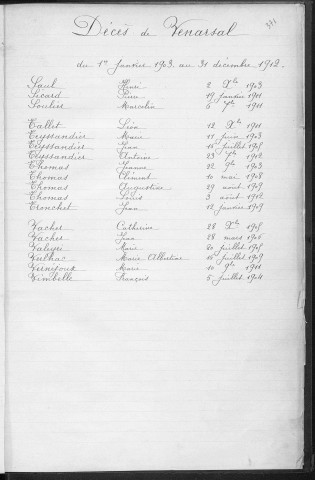 Décès de Venarsal
du 1er Janvier 1903 au 31 décembre 1912.
Saul Henri 2 Xbre 1903
Sicard Pierre 19 Janvier 1911
Soulier Marcelin 5 1911
Tallet Léon 12 Xbre 1911
Teyssandier Marie 11 Juin 1903
Teyssandier Jean 15 Juillet 1905
Teyssandier Antoine 23 1912
Thomas Jeanne 22 1903
Thomas Clément 10 mai 1908
Thomas Augustine 29 août 1909
Thomas Louis 3 août 1912
Tronchet Jean 12 Janvier 1909
Vacher Catherine 28 Xbre 1905
Vacher Jean 28 mars 1905
Valeyre Marie 20 Juillet 1905
Vulhac Marie Albertine 15 Juillet 1909
Vernejoux Marie 10 9bre 1911
Vimbelle François 5 Juillet 1904